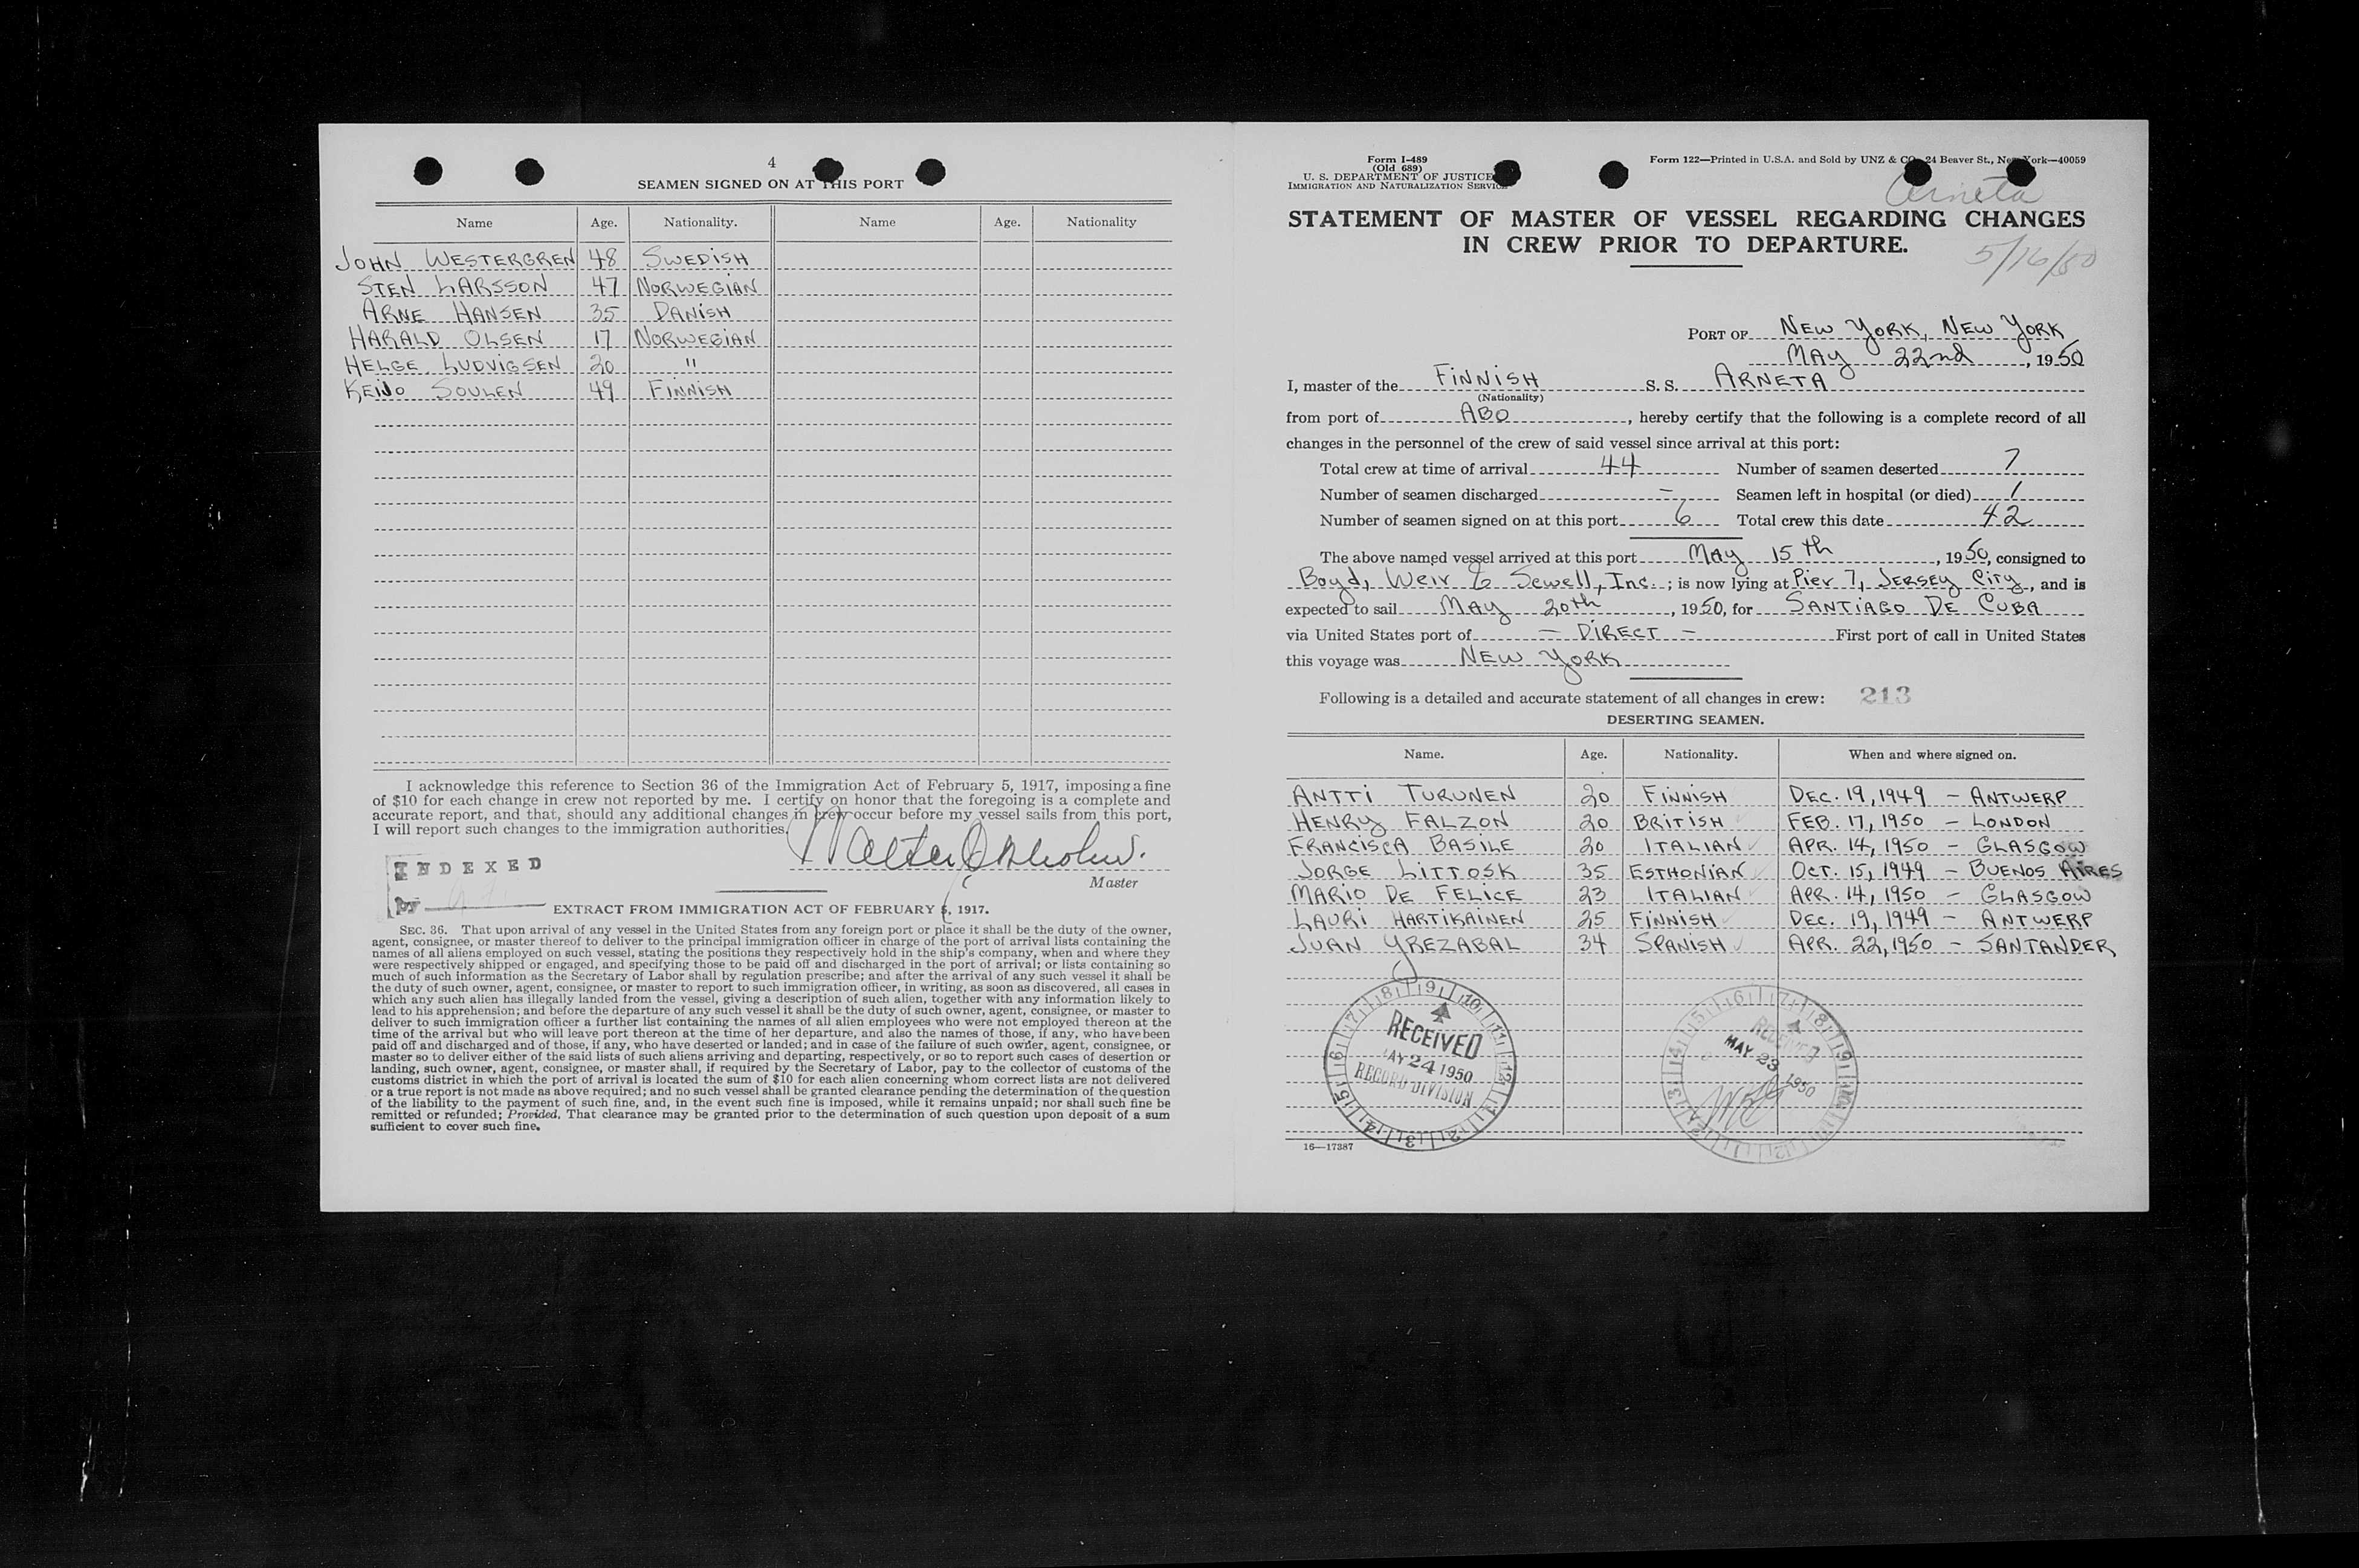 4
SEAMEN SIGNED ON AT THIS PORT
Name Age. Nationality. Name Age. Nationality
JOHN WESTERGREN 48 SWEDISH
STEN LARSSON 47 NORWEGIAN
ARNE HANSEN 35 DANISH
HARALD OLSEN 17 NORWEGIAN
HELGE LUDVIGSEN 20 "
KEIJO SOULEN 49 FINNISH
I acknowledge this reference to Section 36 of the Immigration Act of February 5, 1917, imposing a fine
of $10 for each change in crew not reported by me. I certify on honor that the foregoing is a complete and
accurate report, and that, should any additional changes in crew occur before my vessel sails from this port,
I will report such changes to the immigration authorities.
Walter
Master
INDEXED
by
EXTRACT FROM IMMIGRATION ACT OF FEBRUARY 5, 1917.
SEC. 36. That upon arrival of any vessel in the United States from any foreign port or place it shall be the duty of the owner,
agent, consignee, or master thereof to deliver to the principal immigration officer in charge of the port of arrival lists containing the
names of all aliens employed on such vessel, stating the positions they respectively hold in the ship's company, when and where they
were respectively shipped or engaged, and specifying those to be paid off and discharged in the port of arrival; or lists containing so
much of such information as the Secretary of Labor shall by regulation prescribe; and after the arrival of any such vessel it shall be
the duty of such owner, agent, consignee, or master to report to such immigration officer, in writing, as soon as discovered, all cases in
which any such alien has illegally landed from the vessel, giving a description of such alien, together with any information likely to
lead to his apprehension; and before the departure of any such vessel it shall be the duty of such owner, agent, consignee, or master to
deliver to such immigration officer a further list containing the names of all alien employees who were not employed thereon at the
time of the arrival but who will leave port thereon at the time of her departure, and also the names of those, if any, who have been
paid off and discharged and of those, if any, who have deserted or landed; and in case of the failure of such owner, agent, consignee, or
master so to deliver either of the said lists of such aliens arriving and departing, respectively, or so to report such cases of desertion or
landing, such owner, agent, consignee, or master shall, if required by the Secretary of Labor, pay to the collector of customs of the
customs district in which the port of arrival is located the sum of $10 for each alien concerning whom correct lists are not delivered
or a true report is not made as above required; and no such vessel shall be granted clearance pending the determination of the question
of the liability to the payment of such fine, and, in the event such fine is imposed, while it remains unpaid; nor shall such fine be
remitted or refunded; Provided, That clearance may be granted prior to the determination of such question upon deposit of a sum
sufficient to cover such fine.
Form I-489
(Old 689)
U. S. DEPARTMENT OF JUSTICE
IMMIGRATION AND NATURALIZATION SERVICE
Form 122—Printed in U.S.A. and Sold by UNZ & CO., 24 Beaver St., New York—40059
Arneta
STATEMENT OF MASTER OF VESSEL REGARDING CHANGES
IN CREW PRIOR TO DEPARTURE.
5/16/50
PORT OF NEW YORK, NEW YORK
MAY 22nd, 1950
I, master of the FINNISH S. S. ARNETA
(Nationality)
from port of ABO, hereby certify that the following is a complete record of all
changes in the personnel of the crew of said vessel since arrival at this port:
Total crew at time of arrival 44 Number of seamen deserted 7
Number of seamen discharged - Seamen left in hospital (or died) 1
Number of seamen signed on at this port 6 Total crew this date 42
The above named vessel arrived at this port May 15th, 1950, consigned to
Boyd, Weir & Sewell, Inc.; is now lying at Pier 7, JERSEY City, and is
expected to sail MAY 20th, 1950, for SANTIAGO DE CUBA
via United States port of - DIRECT - First port of call in United States
this voyage was NEW YORK
Following is a detailed and accurate statement of all changes in crew: 213
DESERTING SEAMEN.
Name. Age. Nationality. When and where signed on.
ANTTI TURUNEN 20 FINNISH DEC. 19, 1949 - ANTWERP
HENRY FALZON 20 BRITISH FEB. 17, 1950 - LONDON
FRANCISCA BASILE 20 ITALIAN APR. 14, 1950 - GLASGOW
JORGE LITTOSK 35 ESTHONIAN OCT. 15, 1949 - BUENOS AIRES
MARIO DE FELICE 23 ITALIAN APR. 14, 1950 - GLASGOW
LAURI HARTIKAINEN 25 FINNISH DEC. 19, 1949 - ANTWERP
JUAN YREZABAL 34 SPANISH APR. 22, 1950 - SANTANDER
RECEIVED
MAY 24 1950
RECORD DIVISION
RECEIVED
MAY 23 1950
16—17387